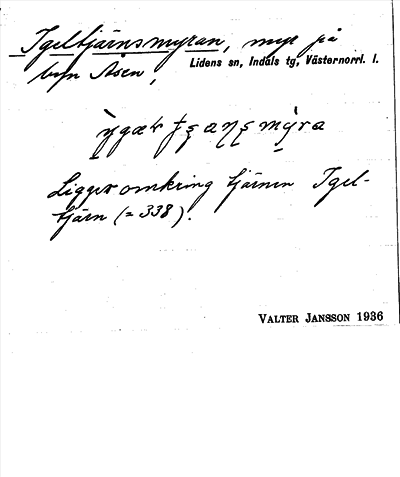 Igeltjärnsmyran, myr på
byn Åsen, Lidens sn, Indals tg, Västernorrl. l.
Ligger omkring tjärnen Igel-
tjärn (= 338).
VALTER JANSSON 1936